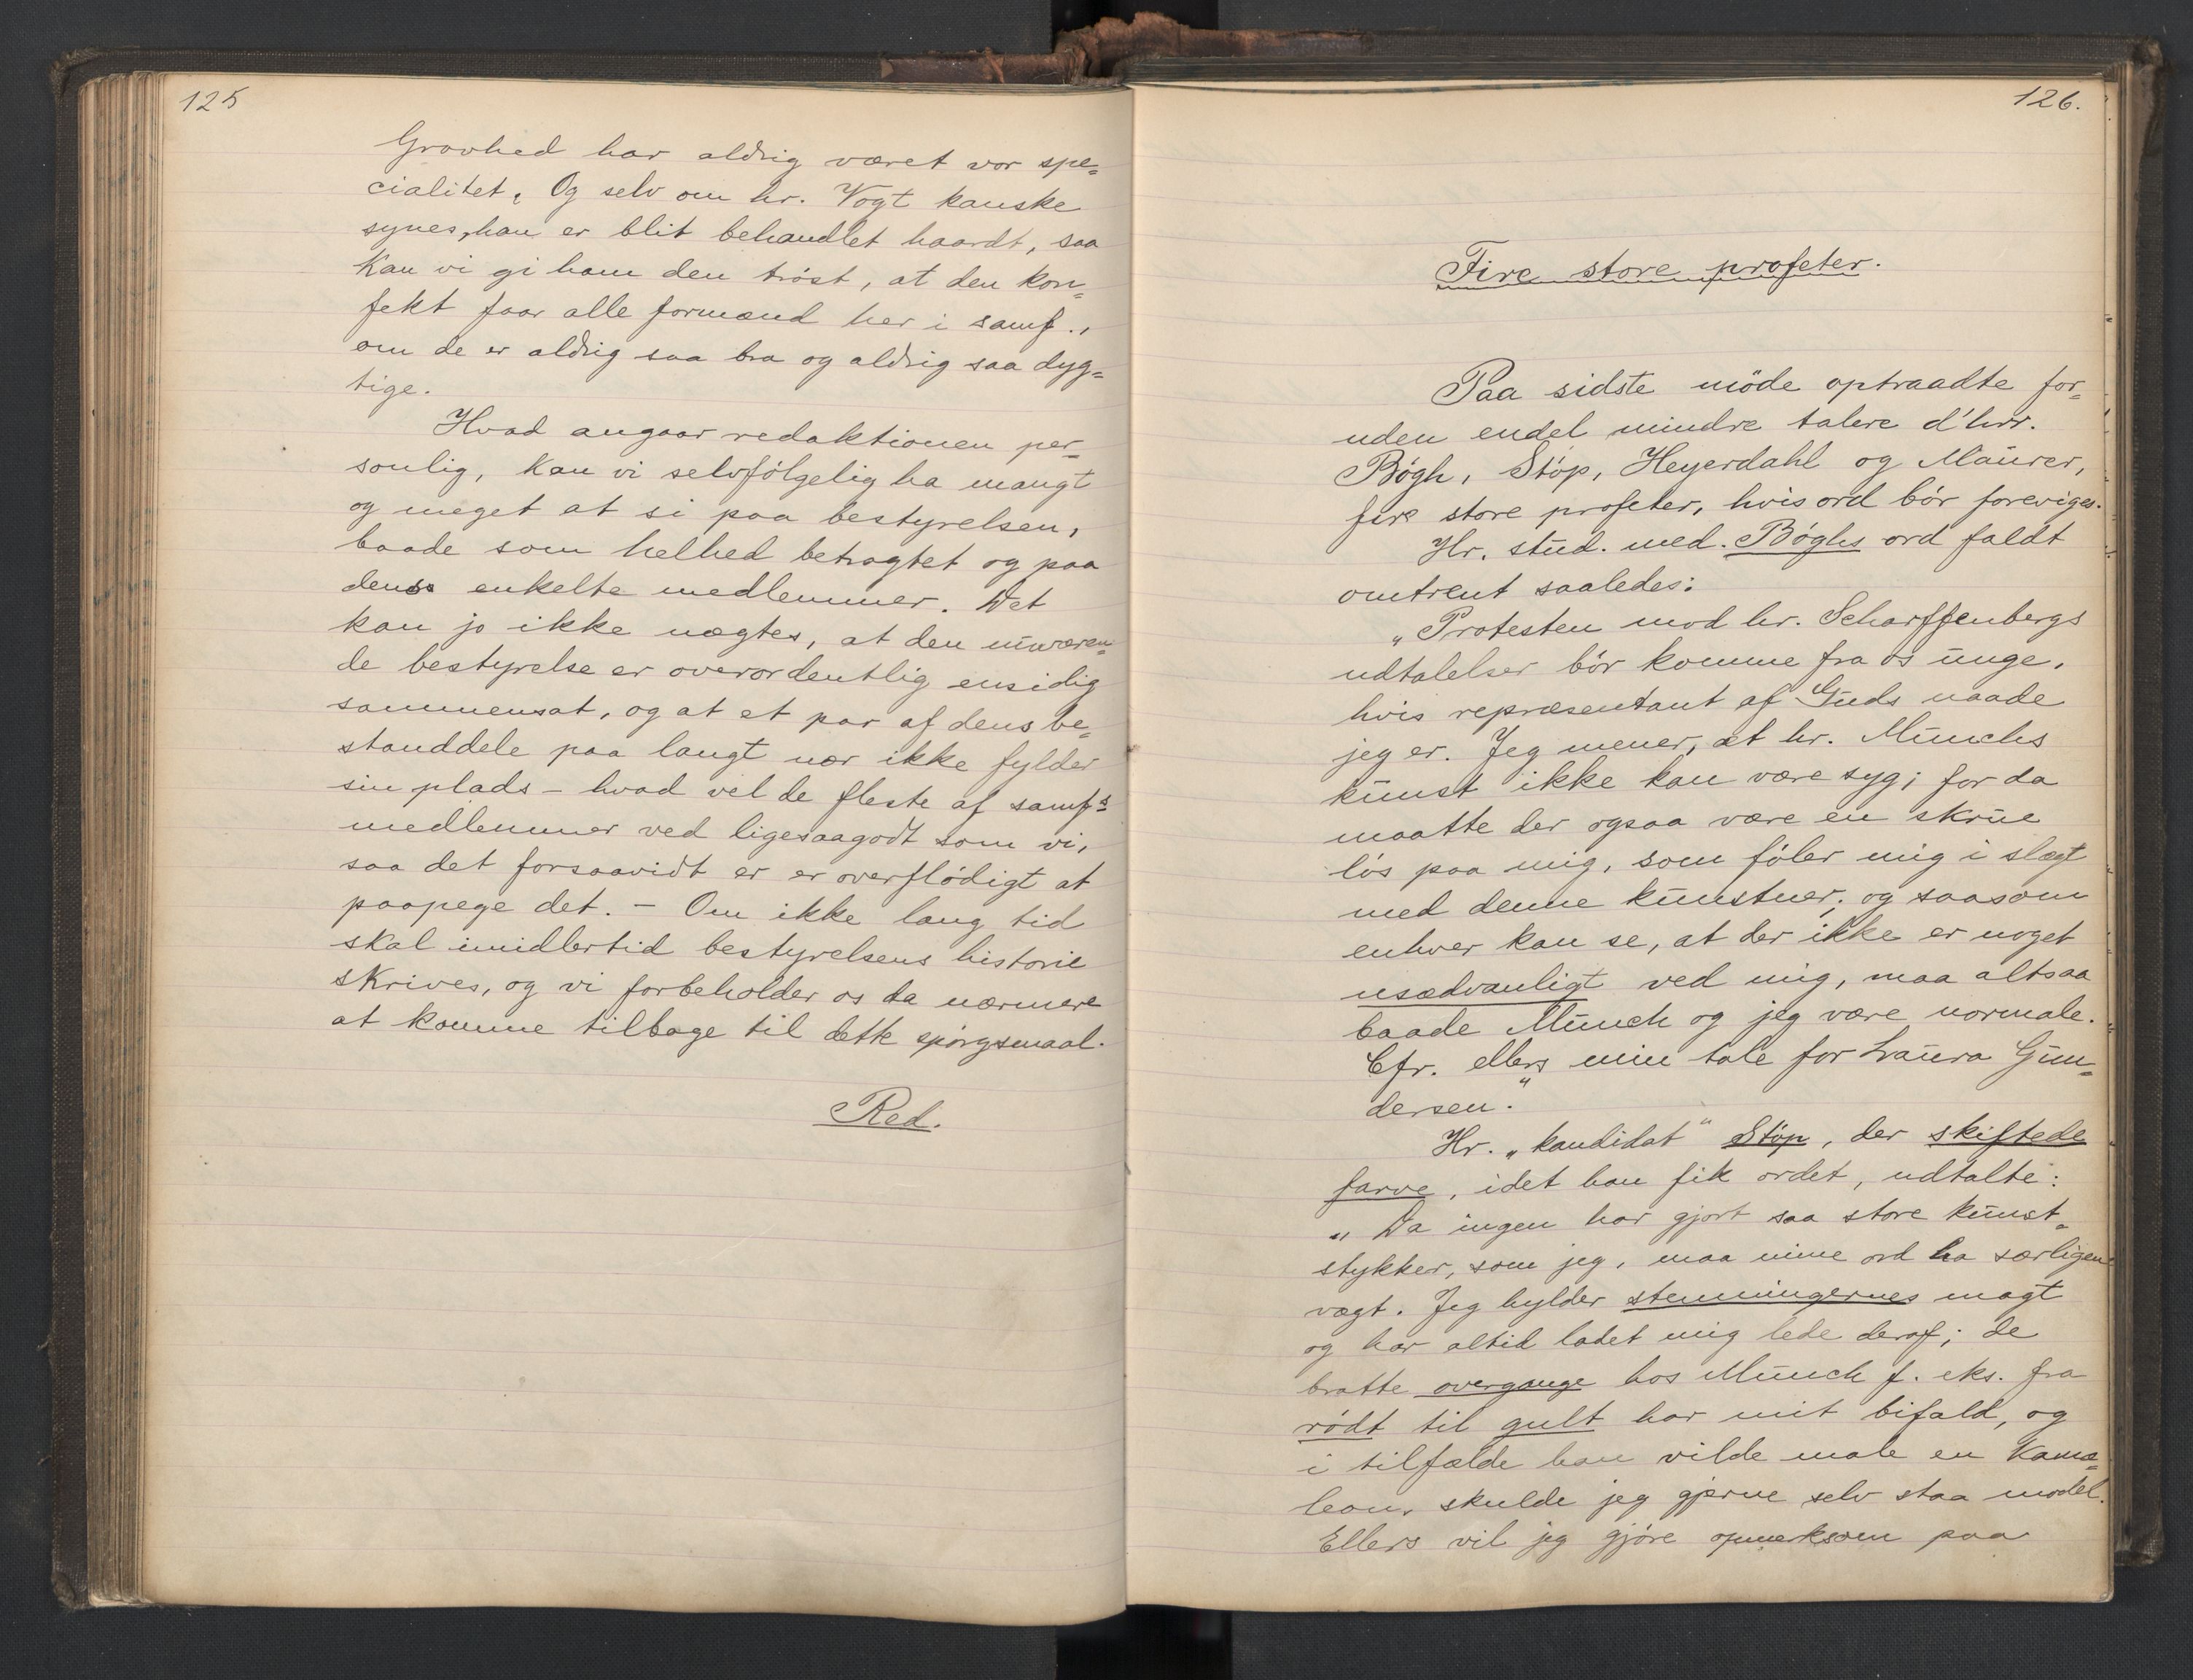 125
Grovhed har aldrig været vor spe=
cialitet. Og selv om hr. Vogt kanske
synes, han er blit behandlet haardt, saa
kan vi gi ham den tröst, at den kon=
fekt faar alle formænd her i samf.,
om de er aldrig saa bra og aldrig saa dyg=
tige.
Hvad angaar redaktionen per=
sonlig, kan vi selvfölgelig ha mangt
og meget at si paa bestyrelsen,
baade som helhed betragtet og paa
dens enkelte medlemmer. Det
kan jo ikke nægtes, at den nuværen=
de bestyrelse er overordentlig ensidig
sammensat, og at et par af dens be=
standdele paa langt nær ikke fylder
sin plads – hvad vel de fleste af samfs
medlemmer ved ligesaagodt som vi,
saa det forsaavidt er er overflödigt at
paapege det. – Om ikke lang tid
skal imidlertid bestyrelsens historie
skrives, og vi forbeholder os da nærmere
at komme tilbage til dette spörgsmaal.
Red.
126.
Fire store profeter.
Paa sidste möde optraadte for=
uden endel mindre talere d'hrr.
Bögh, Stöp, Heyerdahl og Maurer,
fire store profeter, hvis ord bör foreviges.
Hr. stud. med. Böghs ord faldt
omtrent saaledes:
"Protesten mod hr. Scharffenbergs
udtalelser bör komme fra os unge,
hvis repræsentant af Guds naade
jeg er. Jeg mener, at hr. Munchs
kunst ikke kan være syg; for da
maatte der ogsaa være en skrue
lös paa mig, som föler mig i slægt
med denne kunstner; og saasom
enhver kan se, at der ikke er noget
usædvanligt ved mig, maa altsaa
baade Munch og jeg være normale.
Cfr. ellers min tale for Laura Gun=
dersen."
Hr. "kandidat" Stöp, der skiftede
farve, idet han fik ordet, udtalte:
"Da ingen har gjort saa store kunst=
stykker, som jeg, maa mine ord ha særligen
vægt. Jeg hylder stemningernes magt
og har altid ladet mig lede deraf; de
bratte overgange hos Munch f. eks. fra
rödt til gult har mit bifald, og
i tilfælde han vilde male en kamæ=
leon, skulde jeg gjerne selv staa model.
Ellers vil jeg gjöre opmerksom paa